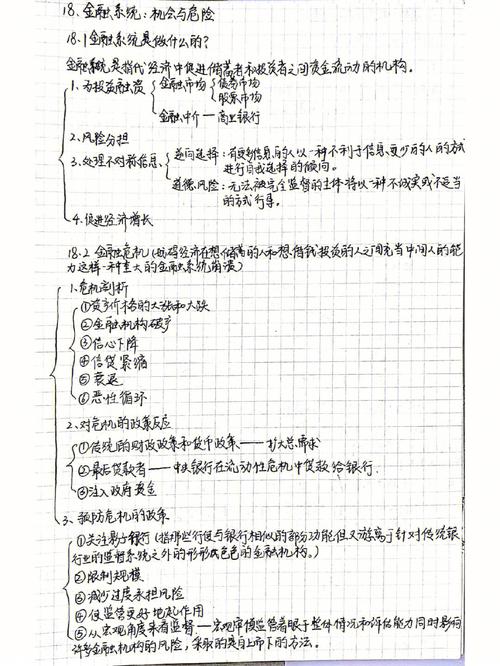 18.金融系统:机会与危险
18.1金融系统是做什么的?
金融系统是指代经济中促进储蓄者和投资者之间资金流动的机构。
1.为投资融资 金融市场 债券市场
股票市场
金融中介—商业银行
2.风险分担
3.处理不对称信息 逆向选择:有更多信息的人以一种不利于信息更少的人的方式
进行自我选择的倾向。
道德风险:无法被完全监督的主体将以一种不诚实或不适当
的方式行事。
4.促进经济增长
18.2金融危机(妨碍经济在想储蓄的人和想借钱投资的人之间充当中间人的能
力这样一种重大的金融系统崩溃)
1.危机剖析
①资产价格的大涨和大跌
②金融机构破产
③信心下降
④信贷紧缩
⑤衰退
⑥恶性循环
2.对危机的政策反应
①传统的财政政策和货币政策——扩大总需求
②最后贷款者——中央银行在流动性危机中贷款给银行.
③注入政府资金
3.预防危机的政策
①关注影子银行(指那些行使与银行相似的部分功能但又游离于针对传统银
行业的监督系统之外的形形色色的金融机构。)
②限制规模
③减少过度承担风险
④使监管更好地起作用
⑤从宏观角度来看监督——宏观审慎监管着眼于整体情况和评估能力同时影响
许多金融机构的风险,采取的是自上而下的方法。